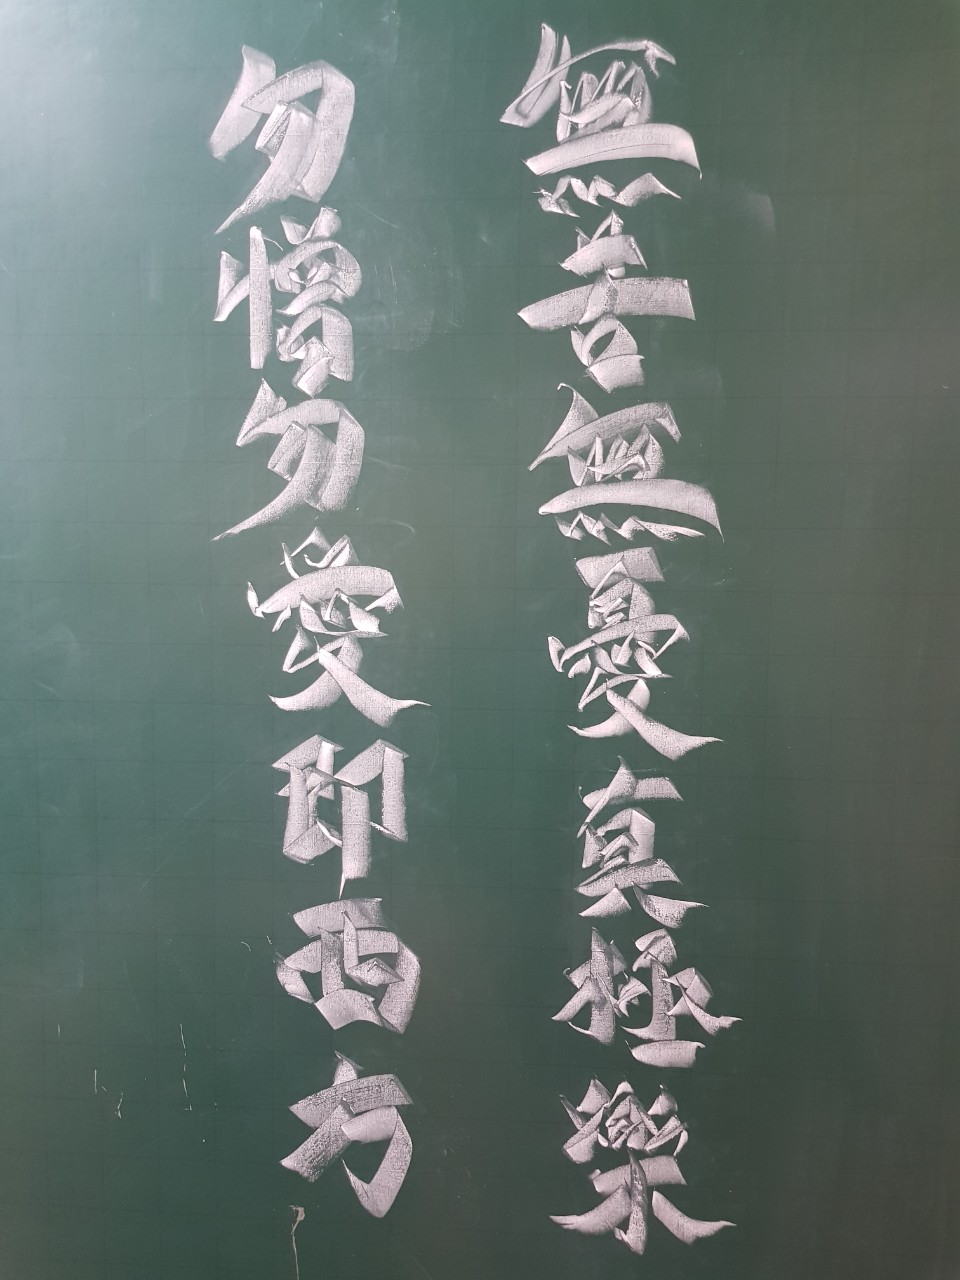 無苦無憂真極樂
勿憎勿愛即西方